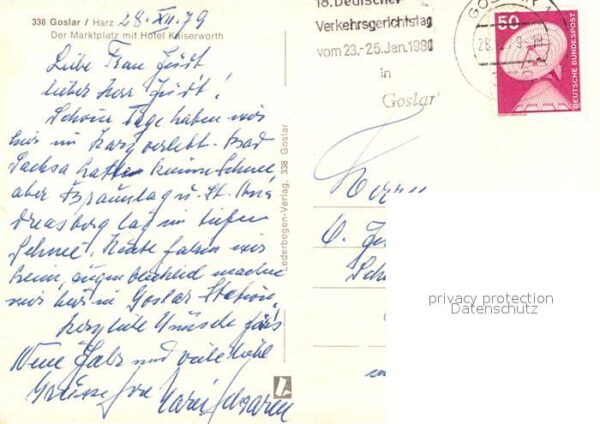 338 Goslar / Harz 28. XII. 79
Der Marktplatz mit Hotel Kaiserworth
Liebe Frau
lieber Herr
Schöne Tage haben wir
hier im Harz verlebt. Bad
Sachsa hatte keinen Schnee,
aber Braunlag u. St. An
dreasberg lag im tiefen
Schnee. Heute fahren wir
heim, augenblicklich machen
wir hier in Goslar Station.
Herzliche Wünsche fürs
Neue Jahr und viele
Grüsse
Lederbogen-Verlag. 338 Goslar
18. Deutscher
Verkehrsgerichtstag
vom 23.-25. Jan. 1980
in
Goslar
GOSLAR 1
50
DEUTSCHE BUNDESPOST
privacy protection
Datenschutz